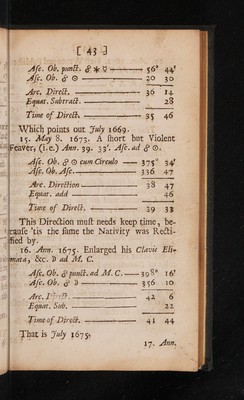 [ 43 ]
Asc. Ob. punct. ☍ ✶ ☿ —— 56° 44'
Asc. Ob. ☍ ☉ —— 20 30
Arc. Direct. —— 36 14
Equat. Subtract. —— 28
Time of Direct. —— 35 46
Which points out July 1669.
15. May 8. 1673. A short but Violent
Feaver, (i.e.) Ann. 39. 33'. Asc. ad ☍ ☉.
Asc. Ob. ☍ ☉ cum Circulo —— 375° 34'
Asc. Ob. Asc. —— 336 47
Arc. Direction —— 38 47
Equat. add —— 46
Time of Direct. —— 39 33
This Direction must needs keep time, be-
cause 'tis the same the Nativity was Recti-
fied by.
16. Ann. 1675. Enlarged his Clavis Eli-
mata, &c. ☽ ad M. C.
Asc. Ob. ☍ punct. ad M. C. —— 398° 16'
Asc. Ob. ☍ ☽ —— 356 10
Arc. Direct. —— 42 6
Equat. Sub. —— 22
Time of Direct. —— 41 44
That is July 1675.
17. Ann.